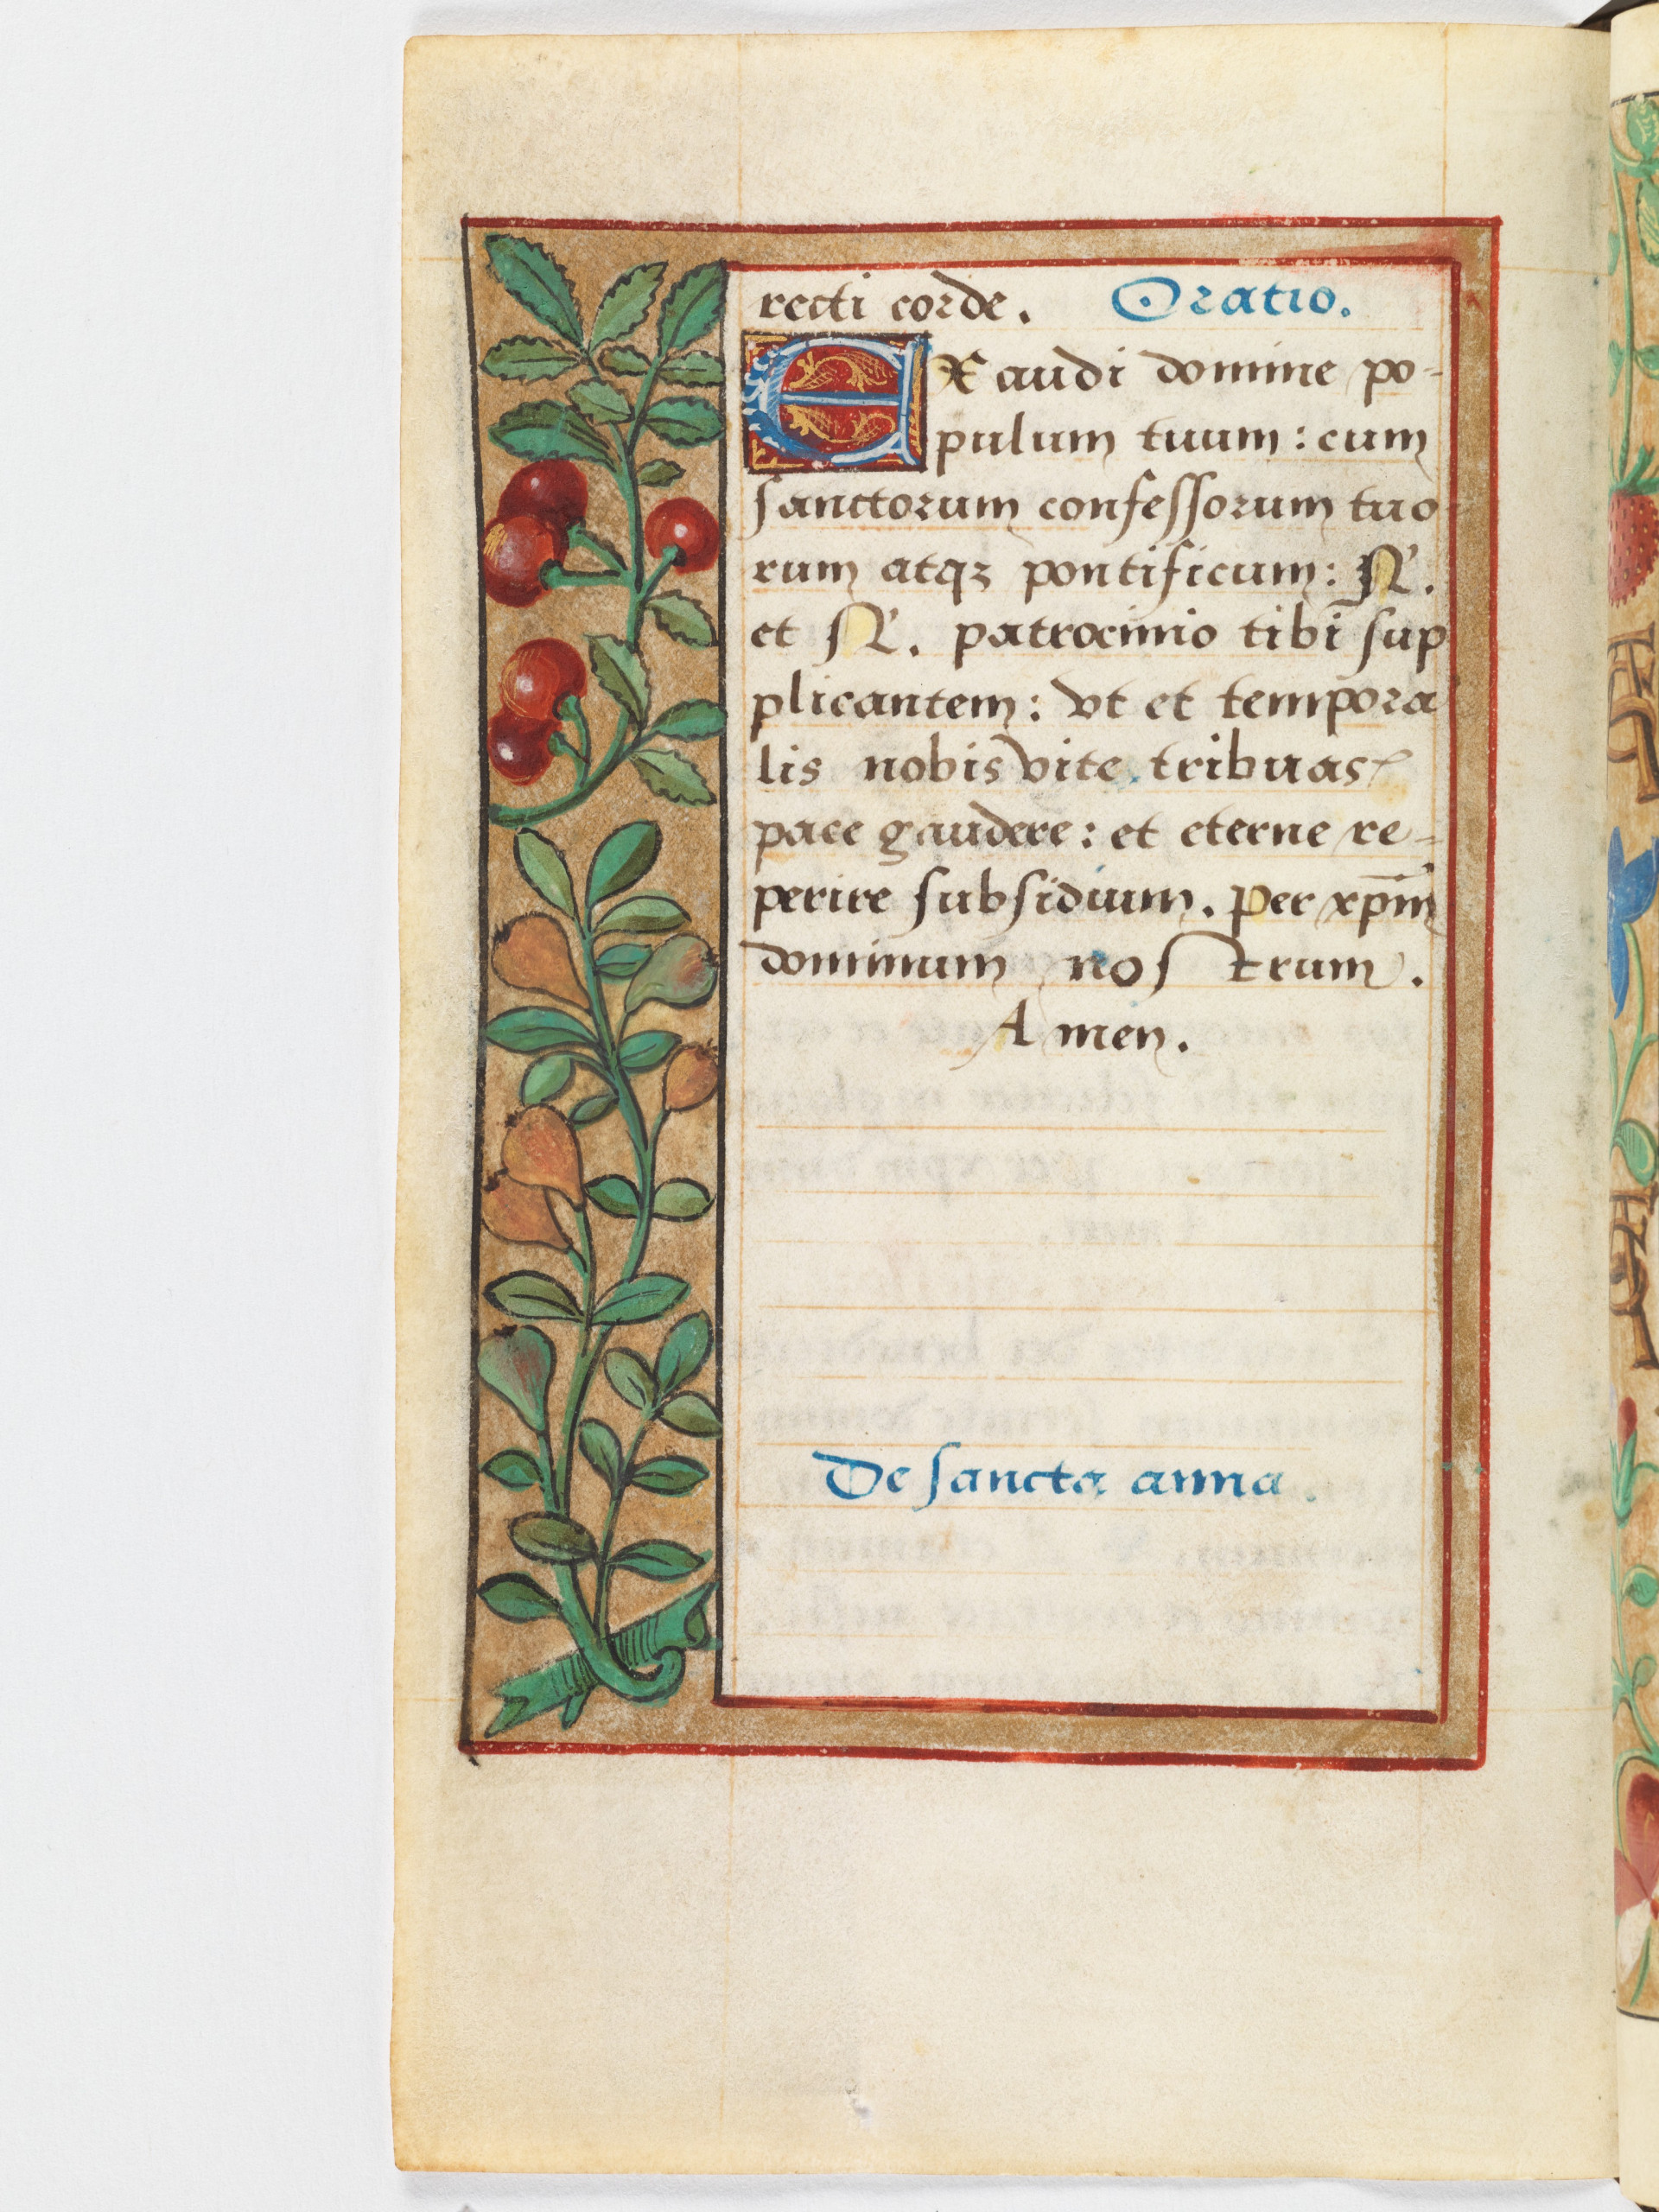 recti corde. Oratio.
EXaudi domine po-
pulum tuum: cum
sanctorum confessorum tuo
rum atqꝫ pontificum: N.
et N. patrocinio tibi sup
plicantem: vt et tempora
lis nobis vite tribuas
pace gaudere: et eterne re-
perire subsidium. Per xp̄m
dominum nostrum.
Amen.
De sancta anna.